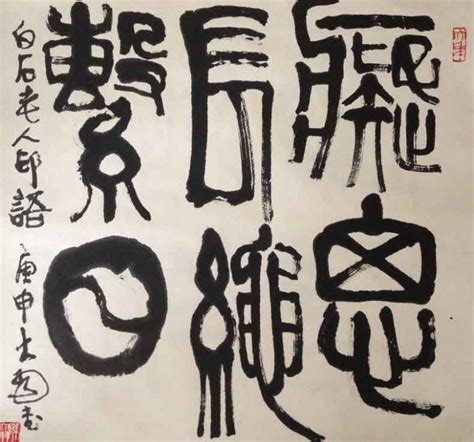 癡思
長繩
繫日
白石老人印語
庚申大書